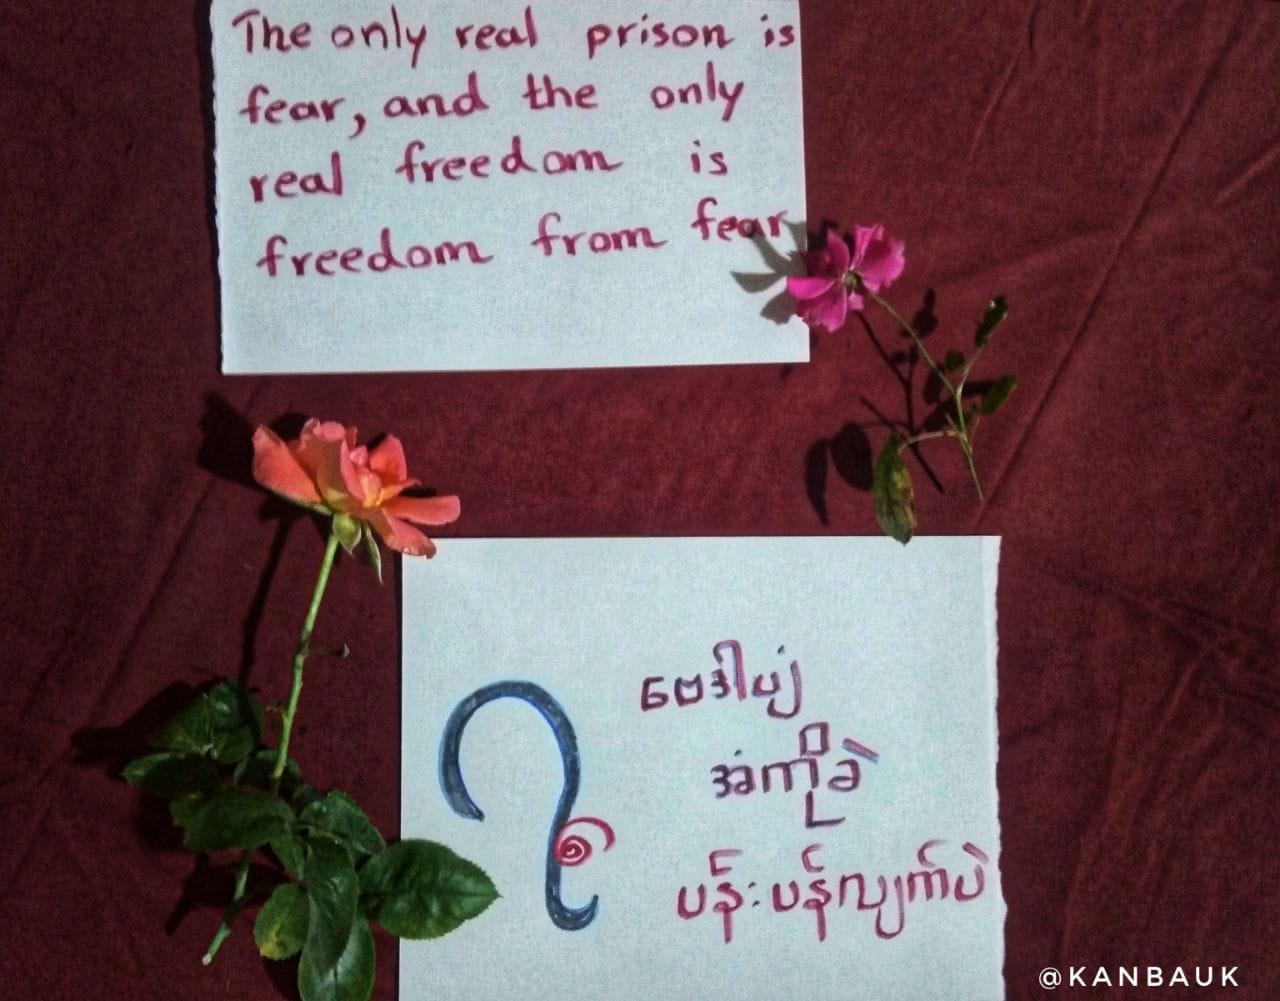 The only real prison is
fear, and the only
real freedom is
freedom from fear
ဗေဒါပျံ
အံကိုခဲ
ပန်းပန်လျက်ပဲ
@KANBAUK